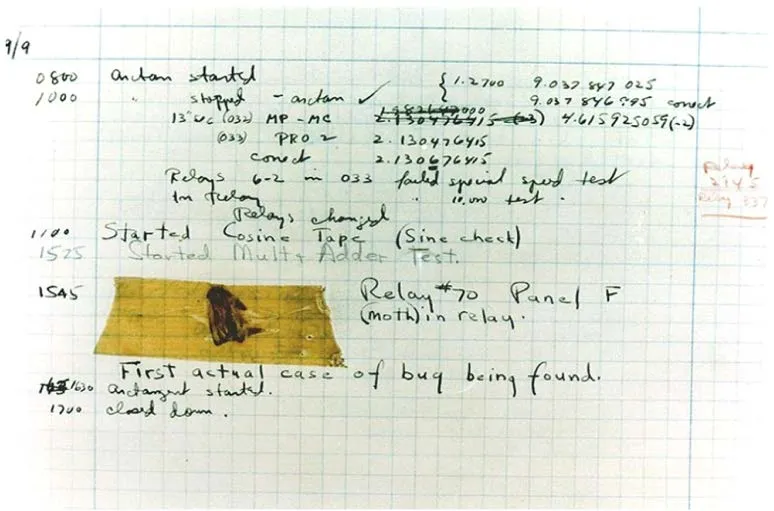 9/9
0800 arctan started { 1.2700 9.037 847 025
1000 " stopped - arctan ✓ 9.037 846 995 conect
13"uc (032) MP - MC 1.982647000 2.130476415 (-3) 4.615925059(-2)
(033) PRO 2 2. 130476415
conect 2.130676415
Relays 6-2 in 033 failed special speed test
in Relay " 10.000 test .
Relays changed
Relay
2145
Relay 337
1100 Started Cosine Tape (Sine check)
1525 Started Mult + Adder Test.
1545 Relay #70 Panel F
(moth) in relay.
First actual case of bug being found.
1630 arctangent started.
1700 closed down.